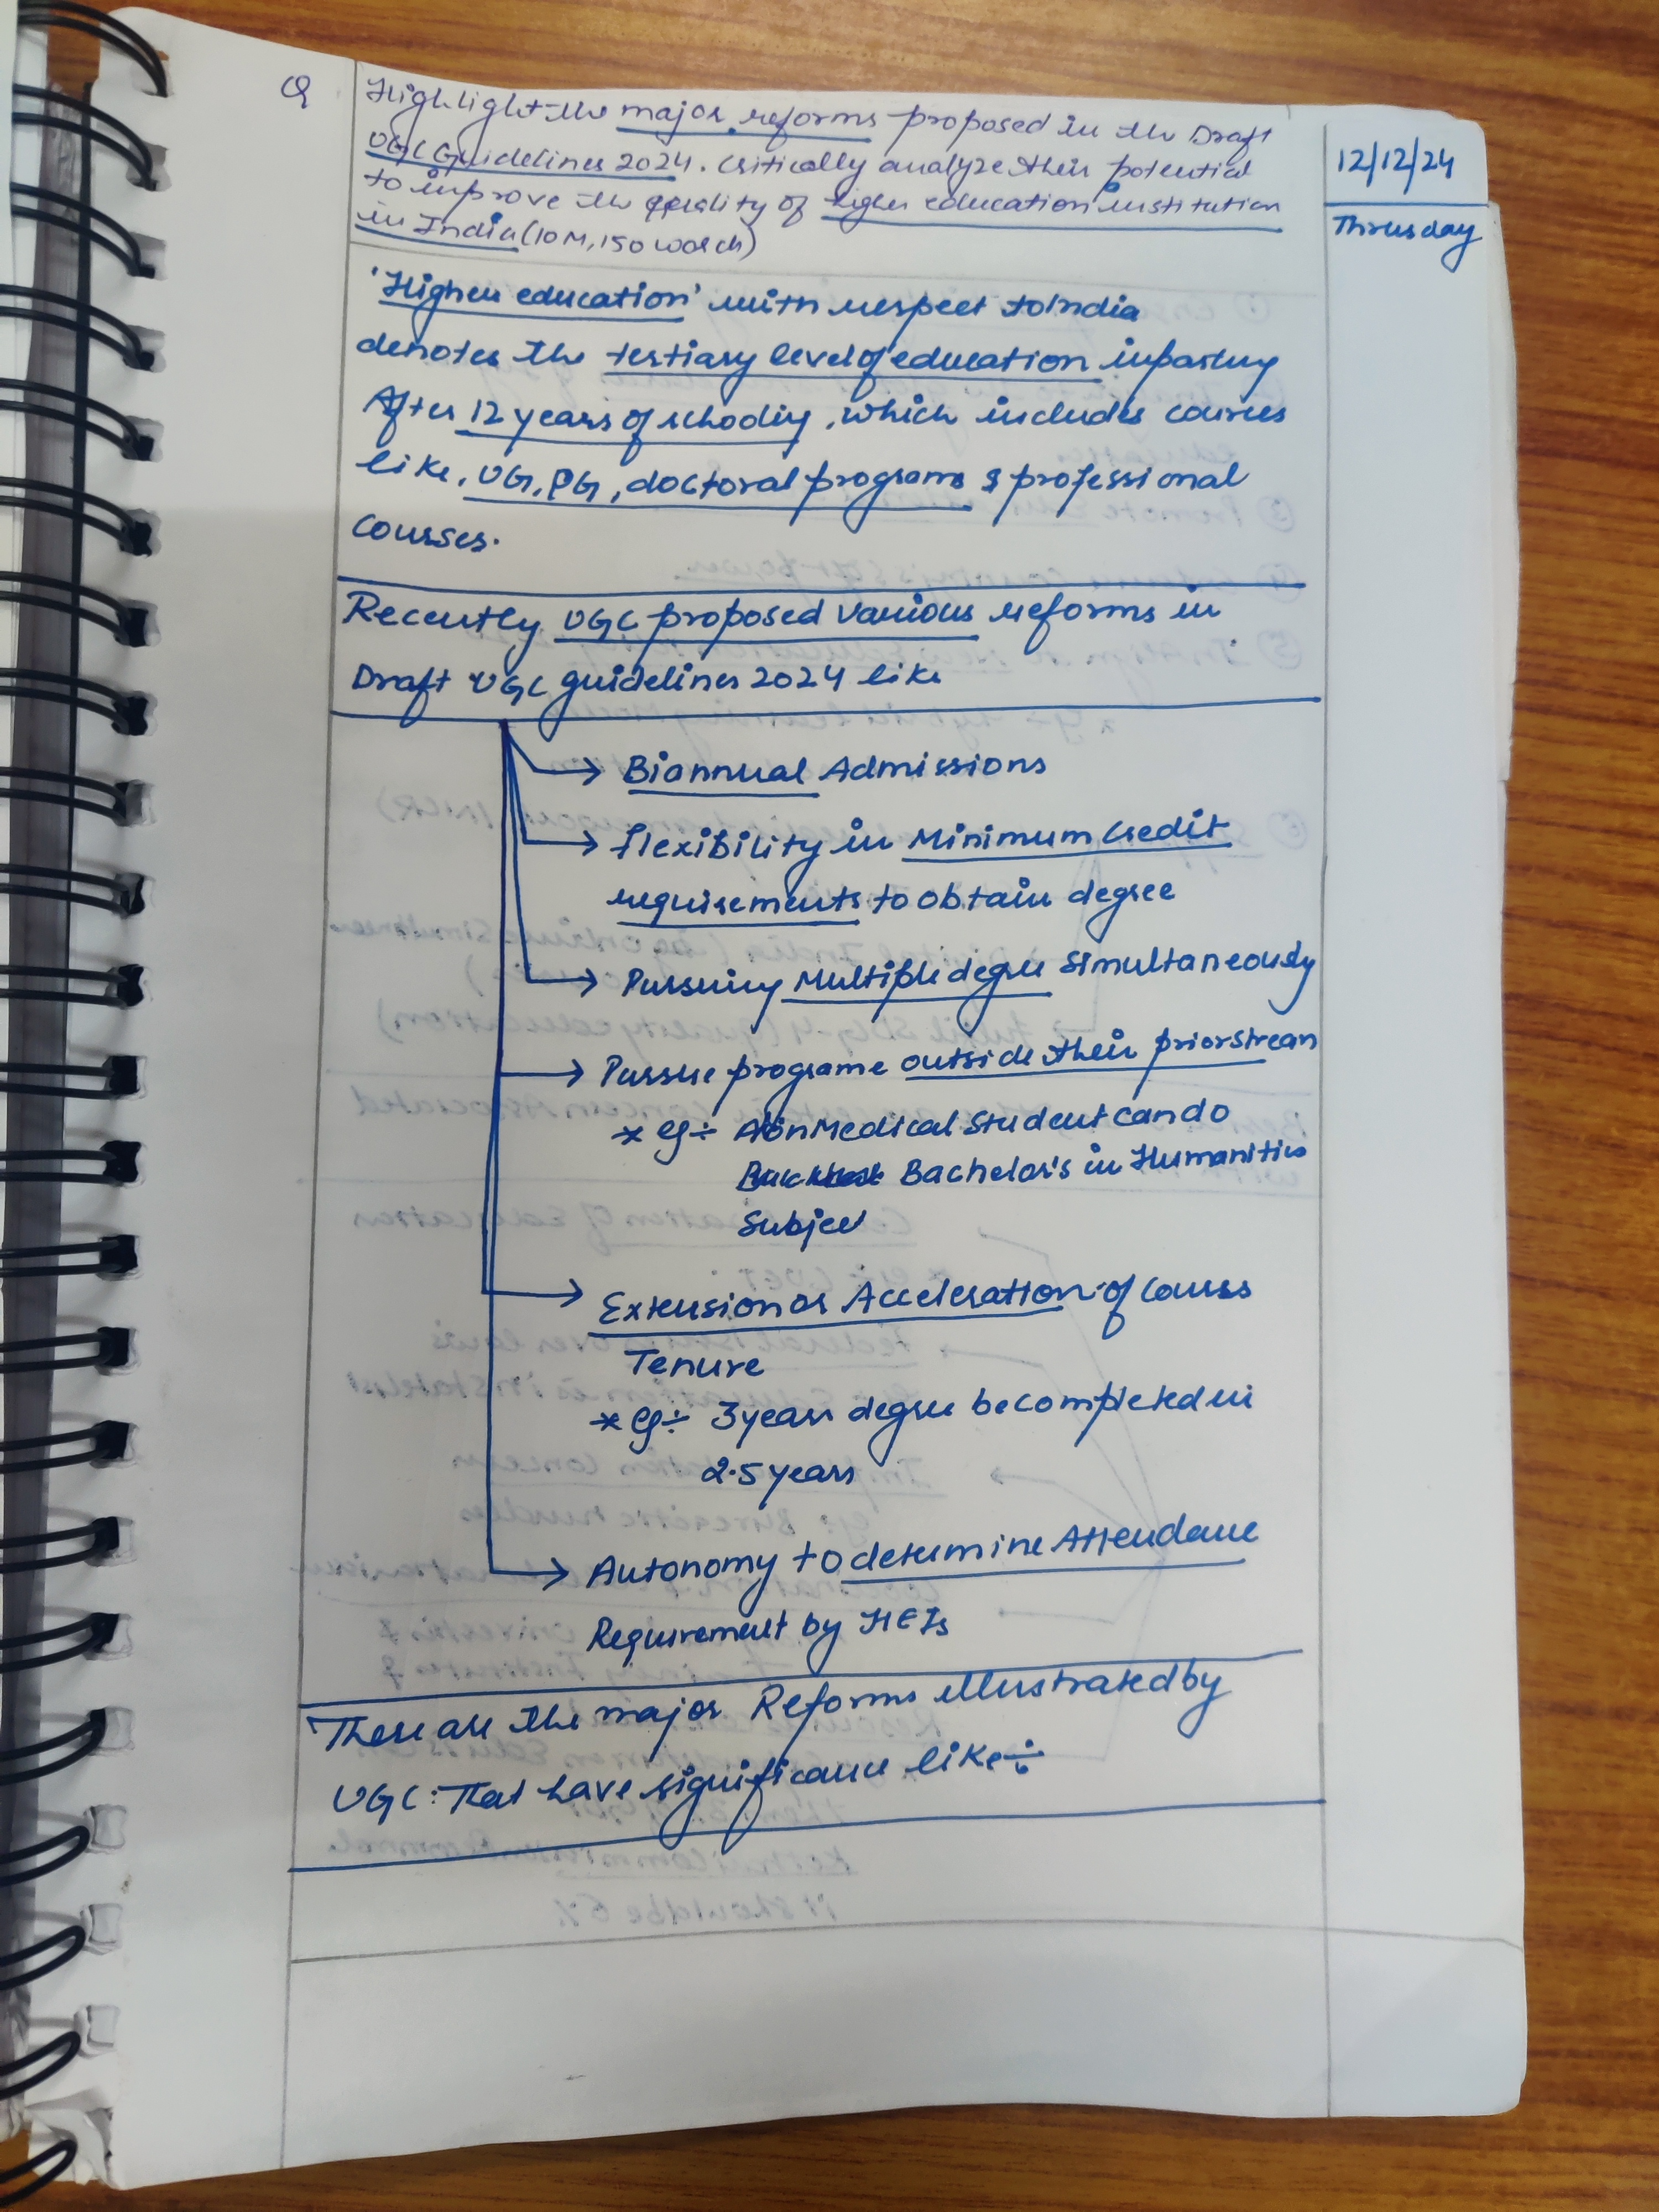 Q
Highlight the major reforms proposed in the Draft
UGC Guidelines 2024. Critically analyze their potential
to improve the quality of higher education institution
in India (10M, 150 words)
12/12/24
Thrusday
'Higher education' with respect to India
denotes the tertiary level of education imparting
After 12 years of schooling, which includes courses
like, UG, PG, doctoral programs & professional
courses.
Recently UGC proposed various reforms in
Draft UGC guidelines 2024 like
→ Biannual Admissions
→ flexibility in Minimum Credit
requirements to obtain degree
→ Pursuing Multiple degree simultaneously
→ Pursue programe outside their prior stream
* eg÷ A Non Medical Student can do
Bachelor's in Humanities
Subject
→ Extension or Acceleration of Course
Tenure
* eg÷ 3 years degree be completed in
2.5 years
→ Autonomy to determine Attendance
Requirement by HEIs
These are the major Reforms illustrated by
UGC. That have significance like÷